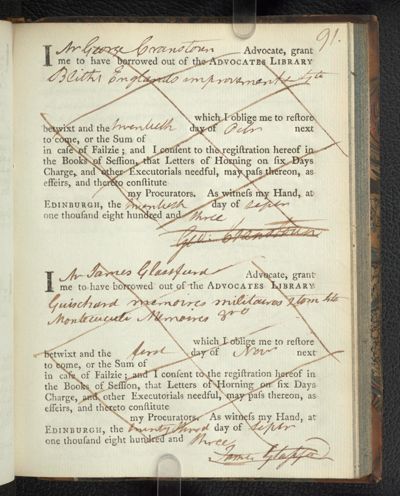 91.
I Mr George Cranstoun Advocate, grant
me to have borrowed out of the ADVOCATES LIBRARY
Bliths Englands improvement 4to
which I oblige me to reſtore
betwixt and the twentieth day of Octr next
to come, or the Sum of
in caſe of Failzie; and I conſent to the regiſtration hereof in
the Books of Seſſion, that Letters of Horning on ſix Days
Charge, and other Executorials needful, may paſs thereon, as
effeirs, and thereto conſtitute
my Procurators. As witneſs my Hand, at
EDINBURGH, the twentieth day of Septr
one thouſand eight hundred and three
Geo: Cranstoun
I Mr James Glassfurd Advocate, grant
me to have borrowed out of the ADVOCATES LIBRARY
Guischard memoires militaires 2 tom 4to
Montecuculi Memoires
which I oblige me to reſtore
betwixt and the first day of Novr next
to come, or the Sum of
in caſe of Failzie; and I conſent to the regiſtration hereof in
the Books of Seſſion, that Letters of Horning on ſix Days
Charge, and other Executorials needful, may paſs thereon, as
effeirs, and thereto conſtitute
my Procurators. As witneſs my Hand, at
EDINBURGH, the twenty third day of Septr
one thouſand eight hundred and three
James Glassfurd